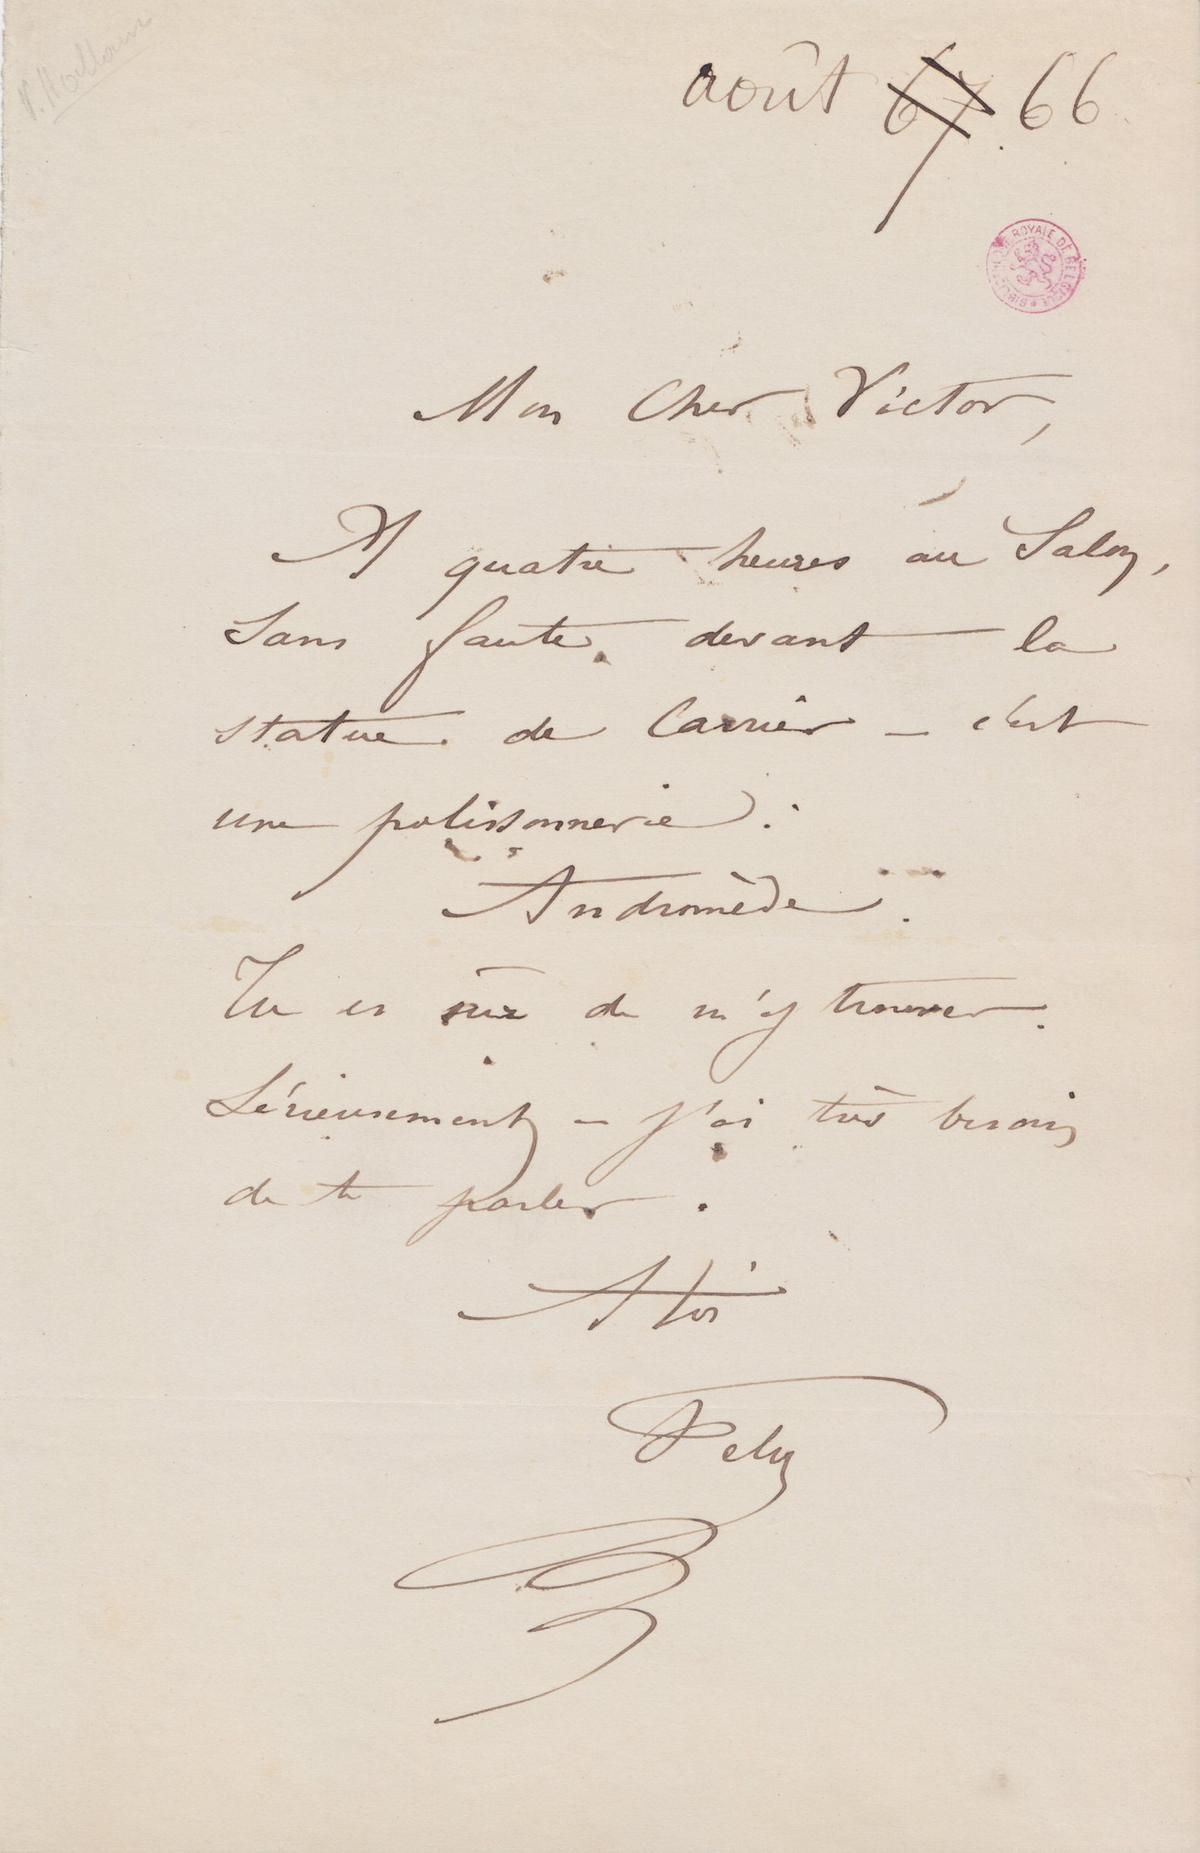 V. Hallaux
août 67 66
BIBLIOTHÈQUE ROYALE DE BELGIQUE
Mon Cher Victor,
A quatre heures au Salon,
sans faute. devant la
statue de Carrier – c'est
une polissonnerie :
Andromède.
Tu es sûr de m'y trouver.
Sérieusement – j'ai très besoin
de te parler.
A toi
Fely